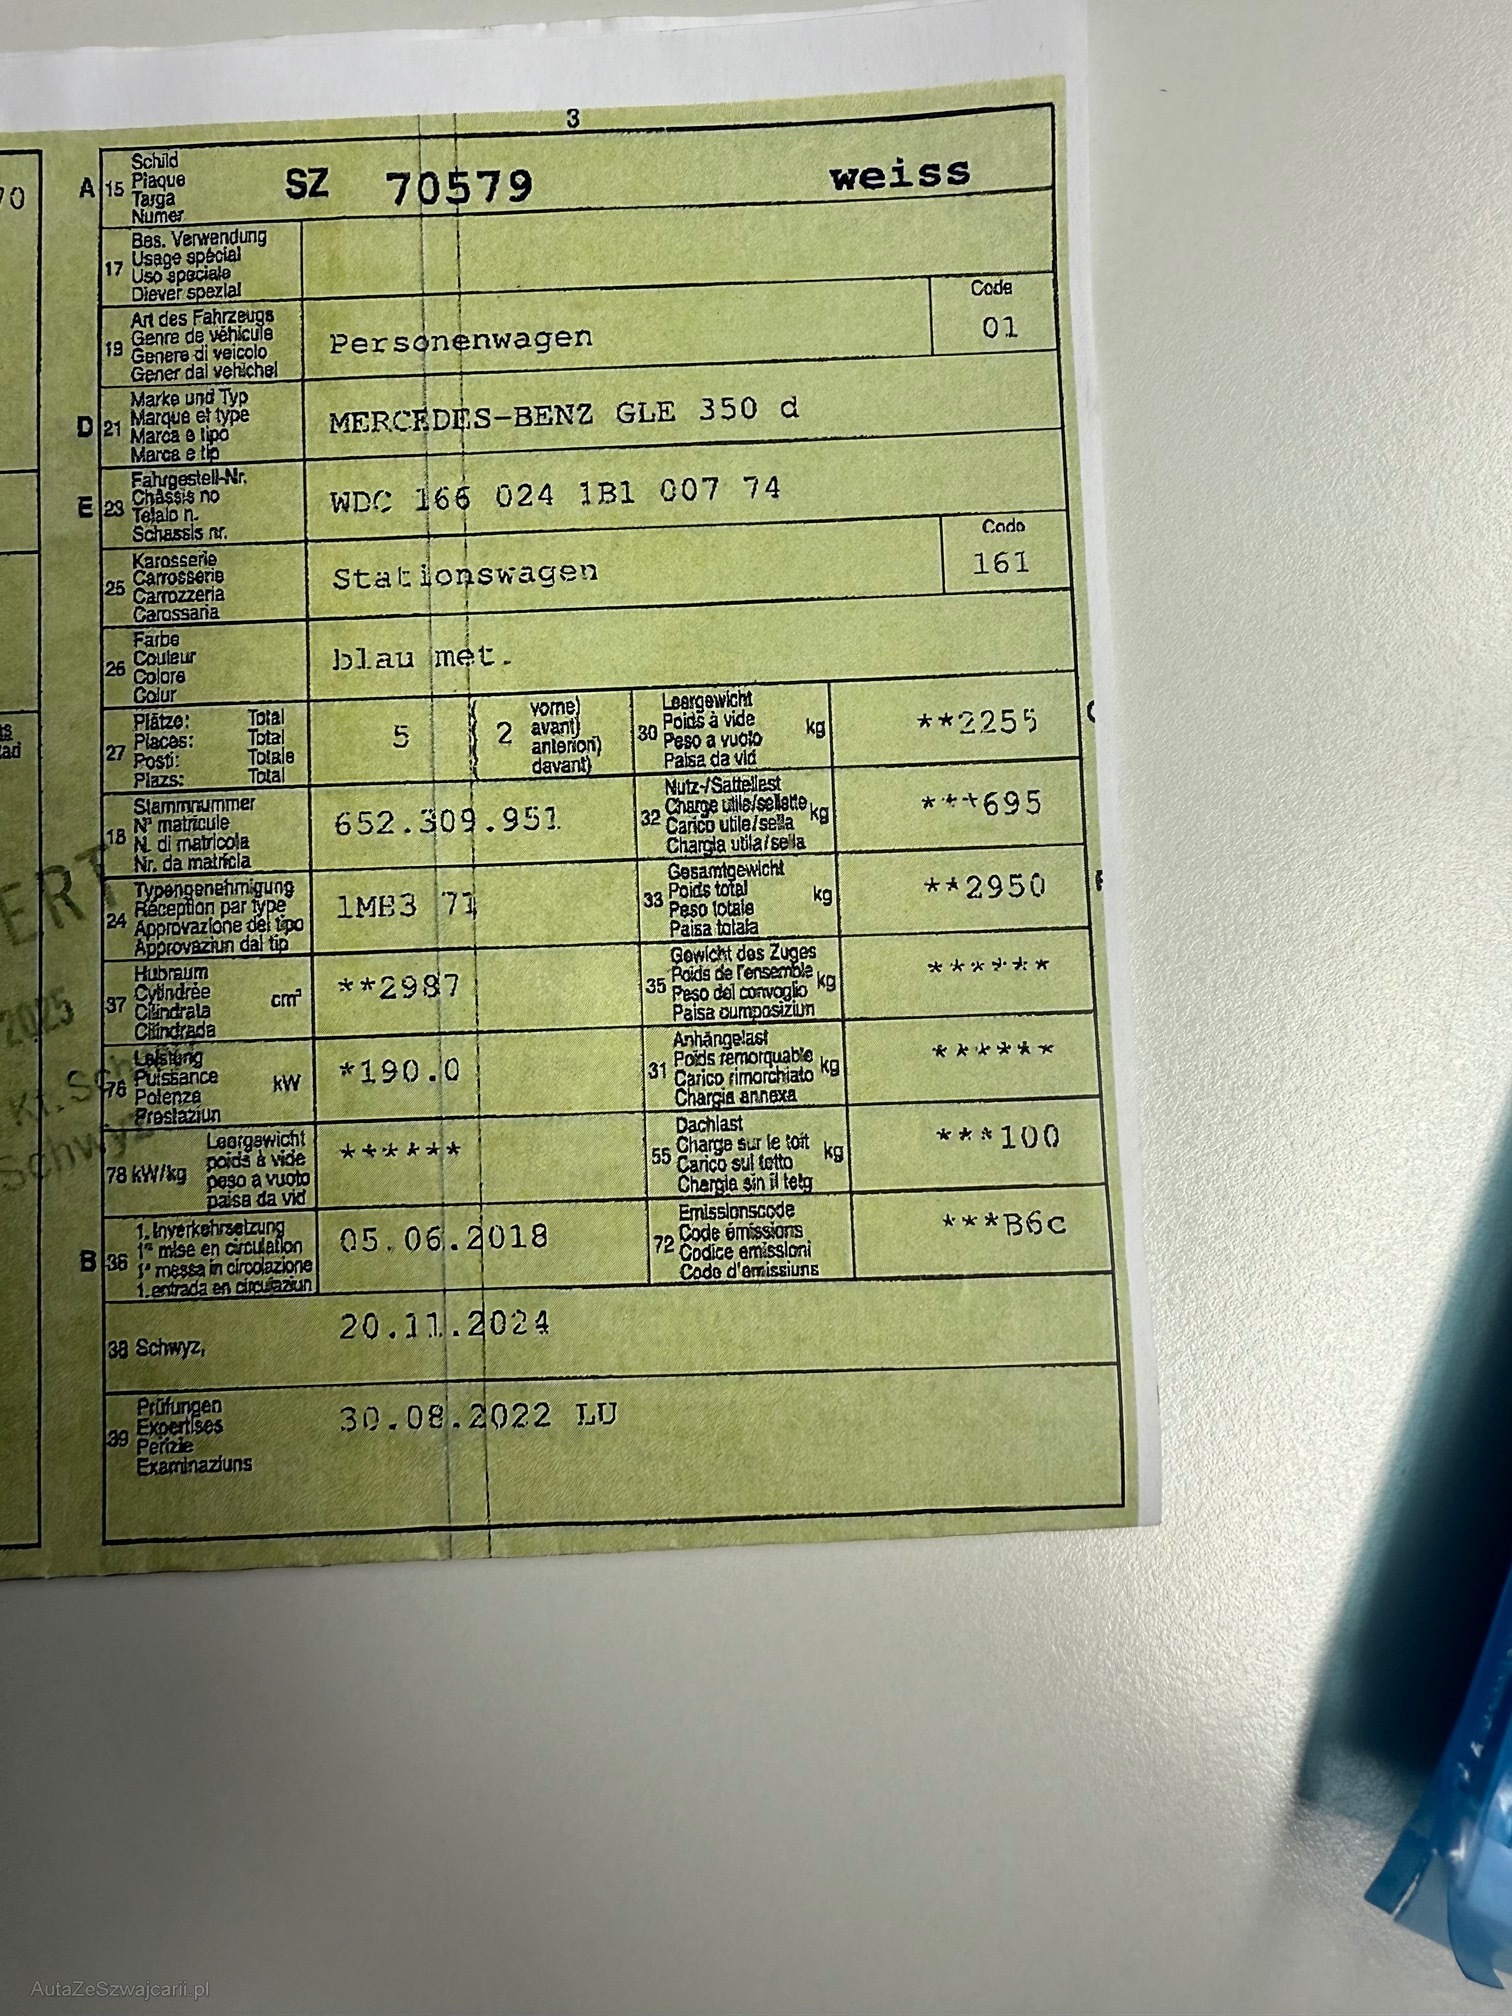 3
70
A 15 Schild
Plaque
Targa
Numer
SZ 70579 weiss
17 Bes. Verwendung
Usage spécial
Uso speciale
Diever spezial
19 Art des Fahrzeugs
Genre de véhicule
Genere di veicolo
Gener dal vehichel
Personenwagen
Code
01
D 21 Marke und Typ
Marque et type
Marca e tipo
Marca e tip
MERCEDES-BENZ GLE 350 d
E 23 Fahrgestell-Nr.
Châssis no
Telaio n.
Schassis nr.
WDC 166 024 1B1 007 74
25 Karosserie
Carrosserie
Carrozzeria
Carossaria
Stationswagen
Code
161
26 Farbe
Couleur
Colore
Colur
blau met.
27 Plätze: Total
Places: Total
Posti: Totale
Plazs: Total
5
2 vorne)
avant)
anteriori)
davant)
30 Leergewicht
Poids à vide
Peso a vuoto
Paisa da vid
kg
**2255
18 Stammnummer
N° matricule
N. di matricola
Nr. da matricla
652.309.951
32 Nutz-/Sattellast
Charge utile/sellette
Carico utile/sella
Chargia utila/sella
kg
***695
24 Typengenehmigung
Réception par type
Approvazione del tipo
Approvaziun dal tip
1MB3 71
33 Gesamtgewicht
Poids total
Peso totale
Paisa totala
kg
**2950
37 Hubraum
Cylindrée
Cilindrata
Cilindrada
cm³
**2987
35 Gewicht des Zuges
Poids de l'ensemble
Peso del convoglio
Paisa cumposiziun
kg
******
76 Leistung
Puissance
Potenza
Prestaziun
kW
*190.0
31 Anhängelast
Poids remorquable
Carico rimorchiato
Chargia annexa
kg
******
78 kW/kg Leergewicht
poids à vide
peso a vuoto
paisa da vid
******
55 Dachlast
Charge sur le toit
Carico sul tetto
Chargia sin il tetg
kg
***100
B 36 1. Inverkehrsetzung
1re mise en circulation
1a messa in circolazione
1. entrada en circulaziun
05.06.2018
72 Emissionscode
Code émissions
Codice emissioni
Code d'emissiuns
***B6c
38 Schwyz,
20.11.2024
39 Prüfungen
Expertises
Perizie
Examinaziuns
30.08.2022 LU
ERT
2025
Kt. Schwyz
Schwyz
AutaZeSzwajcarii.pl